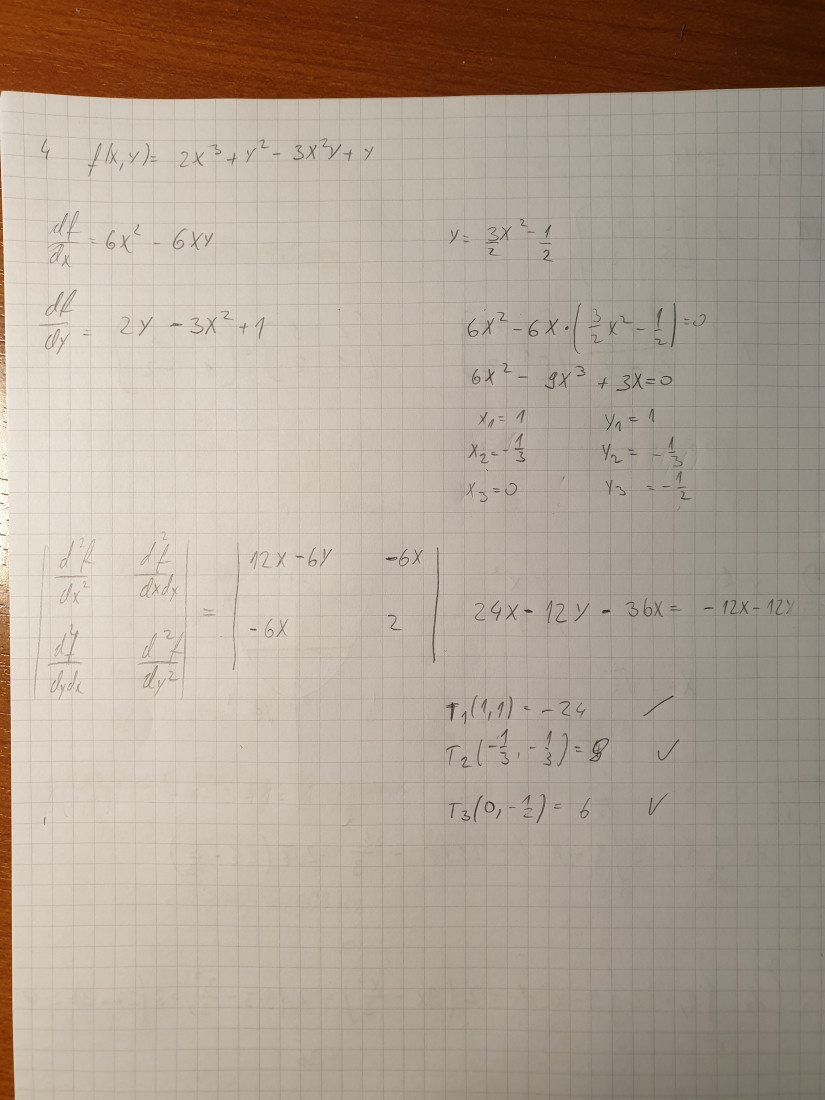 4 f(x,y)= 2x³+y²-3x²y+y
df/dx = 6x² - 6xy
y= 3/2 x² - 1/2
df/dy = 2y - 3x² + 1
6x² - 6x·(3/2 x² - 1/2)=0
6x² - 9x³ + 3x=0
x₁= 1 y₁= 1
x₂=-1/3 y₂= -1/3
x₃=0 y₃ = -1/2
|d²f/dx² d²f/dxdy| = |12x-6y -6x|
|d²f/dydx d²f/dy²| |-6x 2| 24x - 12y - 36x = -12x-12y
T₁(1,1) = -24 /
T₂(-1/3, -1/3)= 8 ✓
T₃(0,-1/2)= 6 ✓